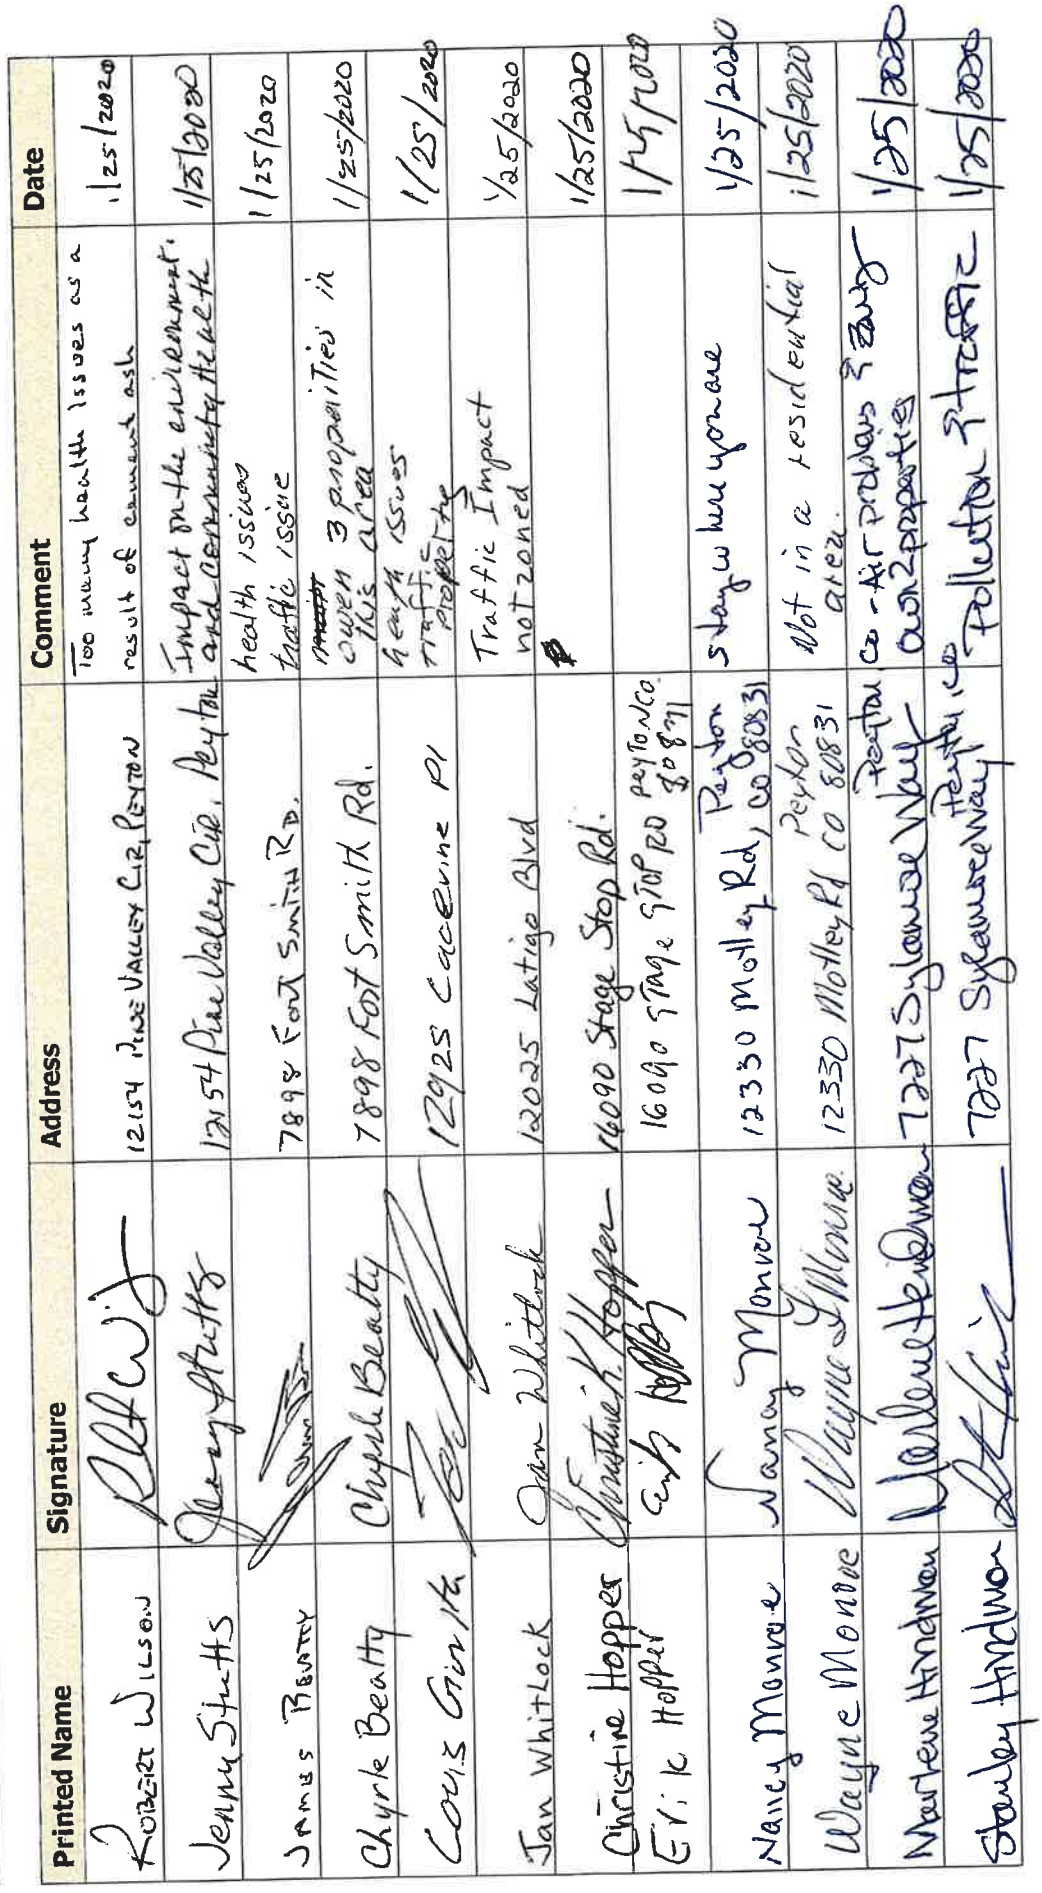 Printed Name Signature Address Comment Date
ROBERT WILSON 12154 PINE VALLEY CIR, PEYTON Too many health issues as a 1/25/2020
result of cement ash
Jenny Stutts Jenny Stutts 12154 Pine Valley Cir. Peyton Impact on the environment. 1/25/2020
and community Health
JAMES BEATTY 7898 Fort Smith RD. health issues 1/25/2020
traffic issue
Chyrle Beatty Chyrle Beatty 7898 Fort Smith Rd. owen 3 properities in 1/25/2020
this area
Louis 12925 Pl health issues 1/25/2020
traffic
property
Jan Whitlock Jan Whitlock 12025 Latigo Blvd Traffic Impact 1/25/2020
not zoned
Christine Hopper Christine K. Hopper 16090 Stage Stop Rd. 1/25/2020
Erik Hopper 16090 STAGE STOP RD PEYTON CO. 1/25/2020
80831
Nancy Monroe Nancy Monroe 12330 Motley Rd, Peyton stay where you are 1/25/2020
CO 80831
Wayne Monroe Wayne L Monroe 12330 Motley Rd Peyton Not in a residential 1/25/2020
CO 80831 area.
Marlene Hindman Marlene Hindman 7227 Sylamore Way Peyton Co - Air problems & 1/25/2020
own 2 properties
Stanley Hindman 7227 Sylamore Way Peyton, Co Pollution & traffic 1/25/2020